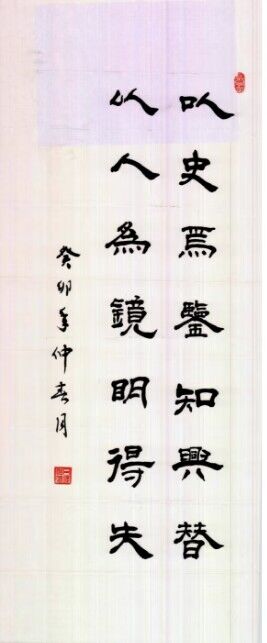 以史爲鑒知興替
以人為鏡明得失
癸卯年仲春月